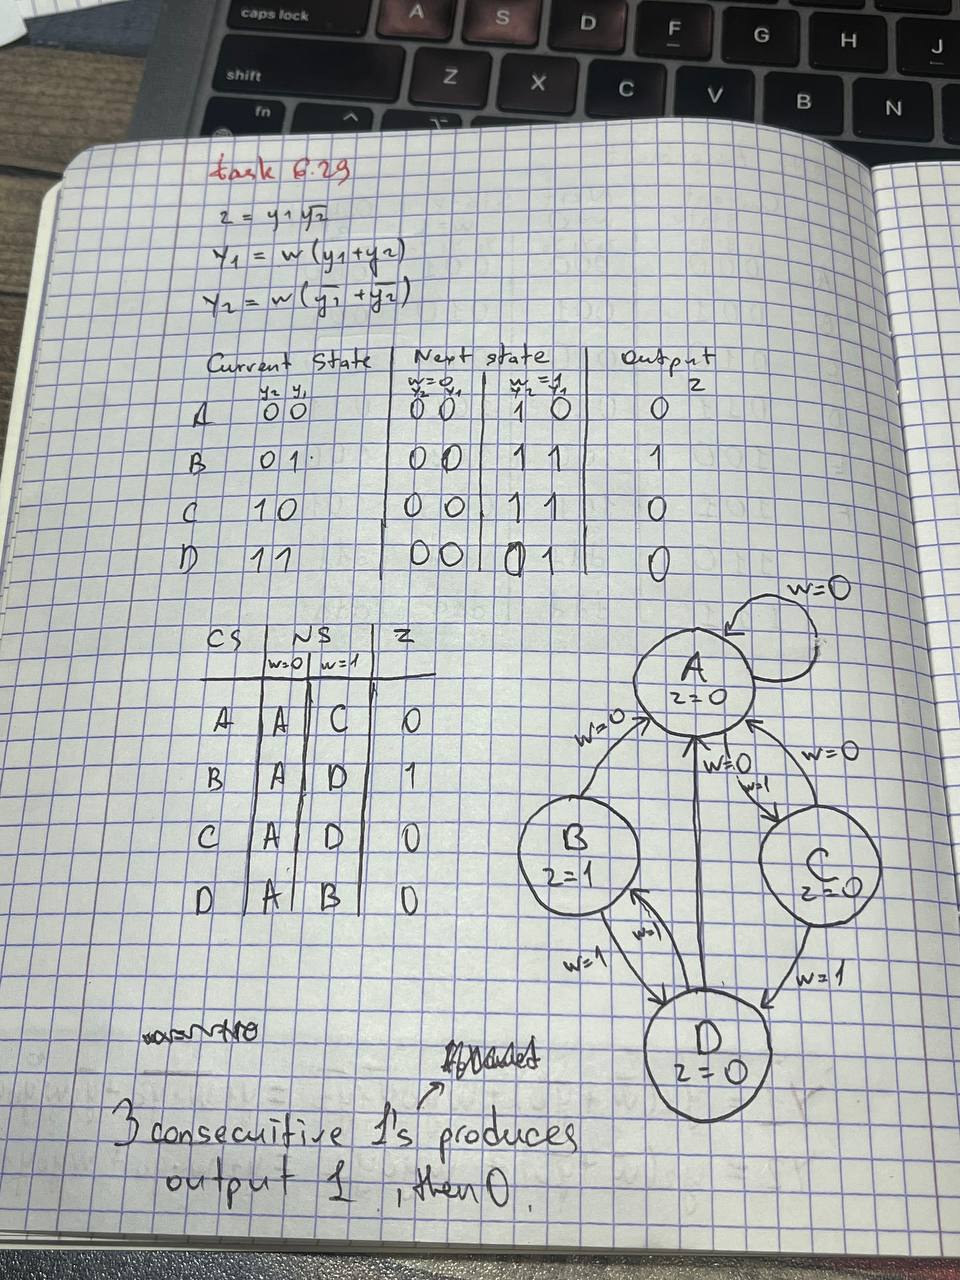 caps lock A S D F G H J
shift Z X C V B N
fn
task 6.29
z = y1 y̅2̅
Y1 = w (y1 + y2)
Y2 = w (y̅1̅ + y̅2̅)
Current State | Next state | Output
w=0 w=1 z
y2 y1 Y2 Y1 Y2 Y1
A 00 00 10 0
B 01 00 11 1
C 10 00 11 0
D 11 00 01 0
CS | NS | z
w=0 w=1
A A C 0
B A D 1
C A D 0
D A B 0
w=0
A
z=0
w=0
w=0
w=0
w=1
B
z=1
C
z=0
w=1
w=1
w=1
D
z=0
3 consecuitive 1's produces
output 1, then 0.